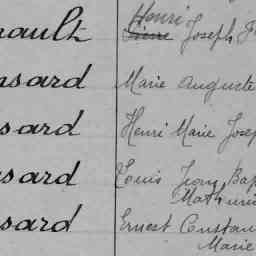 Henri
nault Pierre Joseph F
nsard Marie Auguste
sard Henri Marie Josep
nsard Louis Jean Bap
Mathurin
sard Ernest Constan
Marie